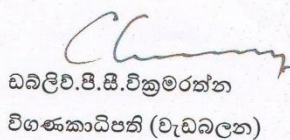 ඩබ්ලිව්.පී.සී.වික්‍රමරත්න
විගණකාධිපති (වැඩබලන)